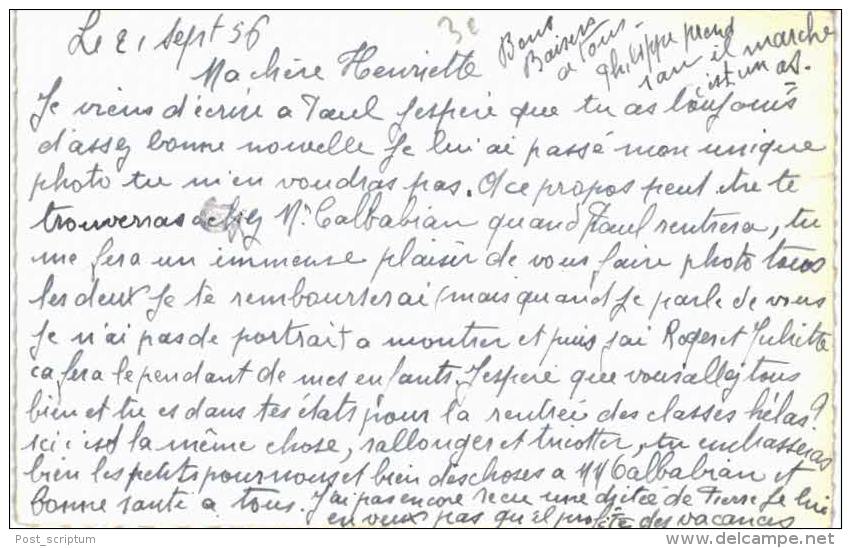 Le 21 sept 56
3e
Bons
Baisers
a tous.
Philippe prend
1 an il marche
c'est un as.
Ma chère Henriette
Je viens d'écrire a Paul j'espère que tu as toujours
d'assez bonne nouvelle Je lui ai passé mon unique
photo tu m'en voudras pas. A ce propos peut être te
trouverras chez Mr Calbabian quand Paul rentrera, tu
me fera un immense plaisir de vous faire photo tous
les deux Je te rembourserai (mais quand je parle de vous
je n'ai pas de portrait a montrer et puis j'ai Roger et Juliette
ca fera le pendant de mes enfants. J'espère que vous allez tous
bien et tu es dans tes états pour la rentrée des classes hélas?
ici c'est la même chose, rallonger et tricotter, tu embrasseras
bien les petits pour nous et bien des choses a MM Calbabian et
bonne santé a tous. J'ai pas encore recu une de Pierre Je lui
en veux pas qu'il profite des vacances
Post_scriptum
delcampe.net